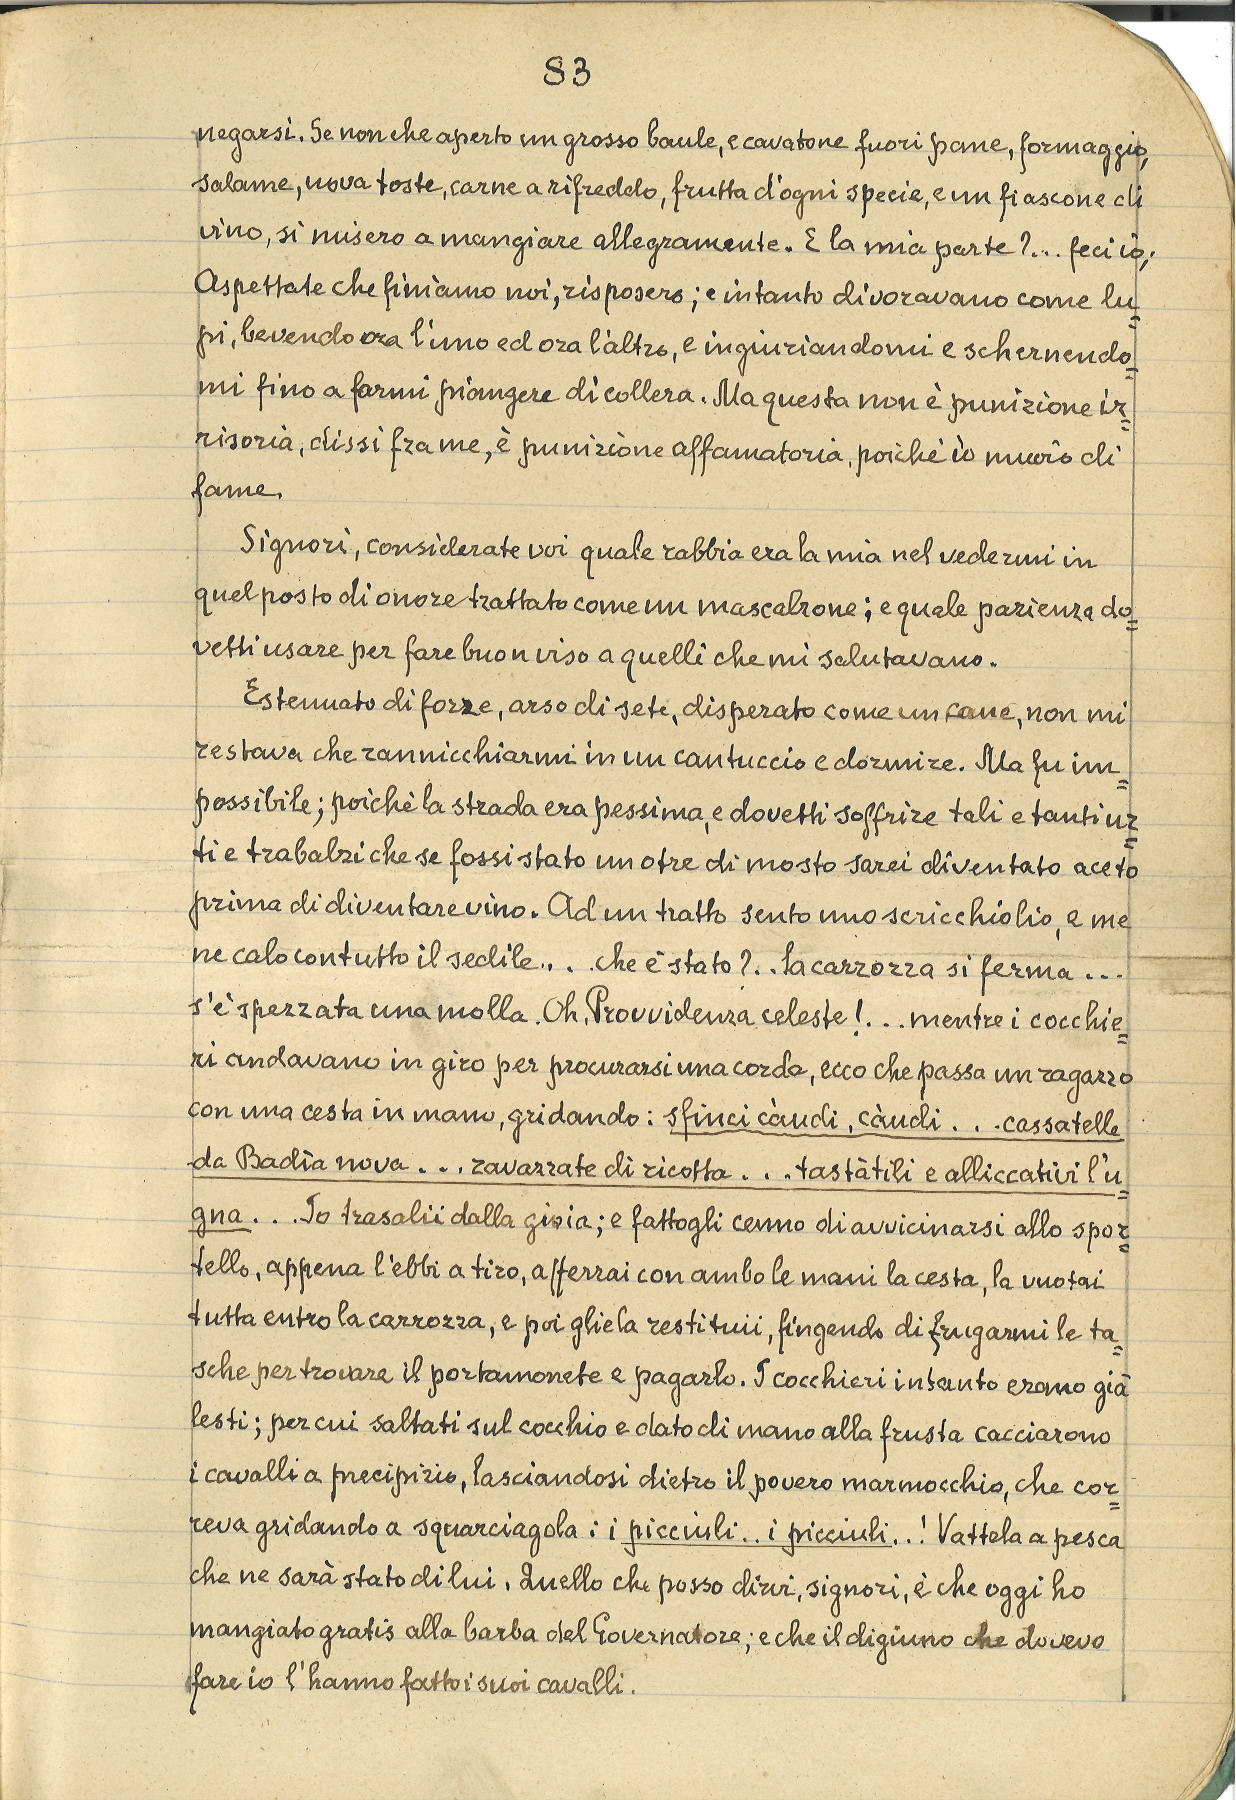 83
negarsi. Se non che aperto un grosso baule, e cavatone fuori pane, formaggio,
salame, uova toste, carne a rifreddo, frutta d'ogni specie, e un fiascone di
vino, si misero a mangiare allegramente. E la mia parte?... feci iò;
Aspettate che finiamo noi, risposero; e intanto divoravano come lu=
pi, bevendo ora l'uno ed ora l'altro, e ingiuriandomi e schernendo=
mi fino a farmi piangere di collera. Ma questa non è punizione ir=
risoria, dissi fra me, è punizione affamatoria, poichè iò muoio di
fame.
Signori, considerate voi quale rabbia era la mia nel vedermi in
quel posto di onore trattato come un mascalzone; e quale pazienza do=
vetti usare per fare buon viso a quelli che mi salutavano.
Estenuato di forze, arso di sete, disperato come un cane, non mi
restava che rannicchiarmi in un cantuccio e dormire. Ma fu im=
possibile; poichè la strada era pessima, e dovetti soffrire tali e tanti ur=
ti e trabalzi che se fossi stato un otre di mosto sarei diventato aceto
prima di diventare vino. Ad un tratto sento uno scricchiolio, e me
ne calo con tutto il sedile... che è stato?.. la carrozza si ferma ...
s'è spezzata una molla. Oh, Provvidenza celeste!... mentre i cocchie=
ri andavano in giro per procurarsi una corda, ecco che passa un ragazzo
con una cesta in mano, gridando: sfinci càudi, càudi... cassatelle
da Badìa nova... ravazzate di ricotta... tastàtili e alliccativi l'u=
gna... Io trasalii dalla gioia; e fattogli cenno di avvicinarsi allo spor=
tello, appena l'ebbi a tiro, afferrai con ambo le mani la cesta, la vuotai
tutta entro la carrozza, e poi gliela restituii, fingendo di frugarmi le ta=
sche per trovare il portamonete e pagarlo. I cocchieri intanto erano già
lesti; per cui saltati sul cocchio e dato di mano alla frusta cacciarono
i cavalli a precipizio, lasciandosi dietro il povero marmocchio, che cor=
reva gridando a squarciagola: i picciuli.. i picciuli..! Vattela a pesca
che ne sarà stato di lui. Quello che posso dirvi, signori, è che oggi ho
mangiato gratis alla barba del Governatore; e che il digiuno che dovevo
fare io l'hanno fatto i suoi cavalli.